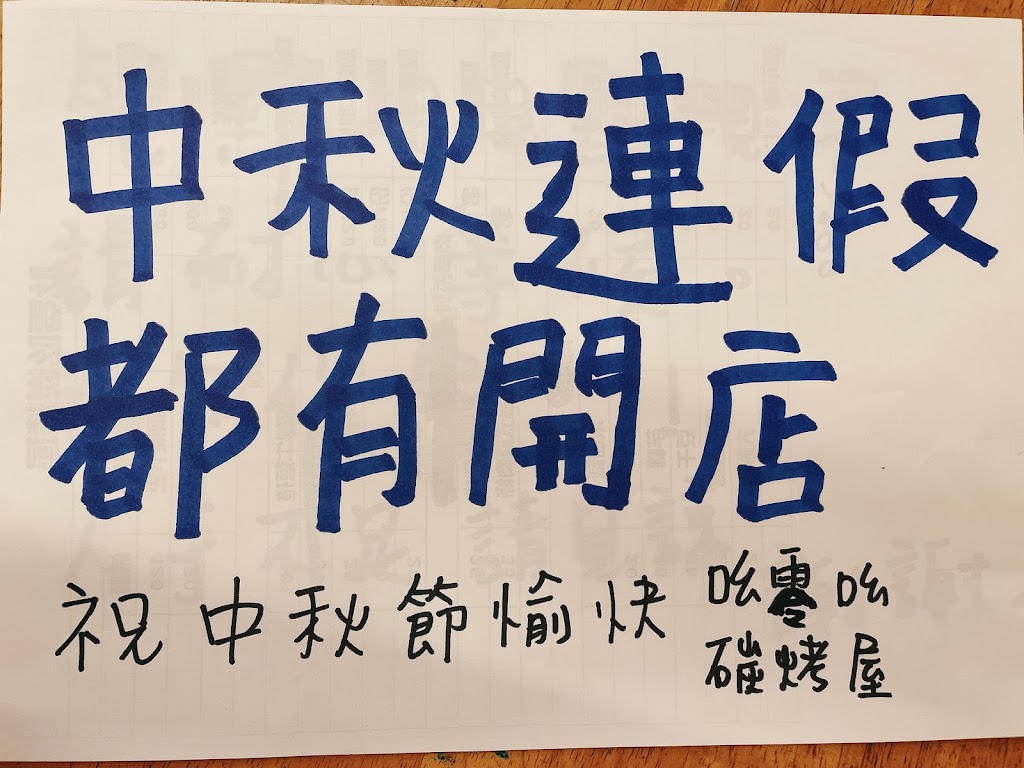 中秋連假
都有開店
祝中秋節愉快
吆零吆
碳烤屋